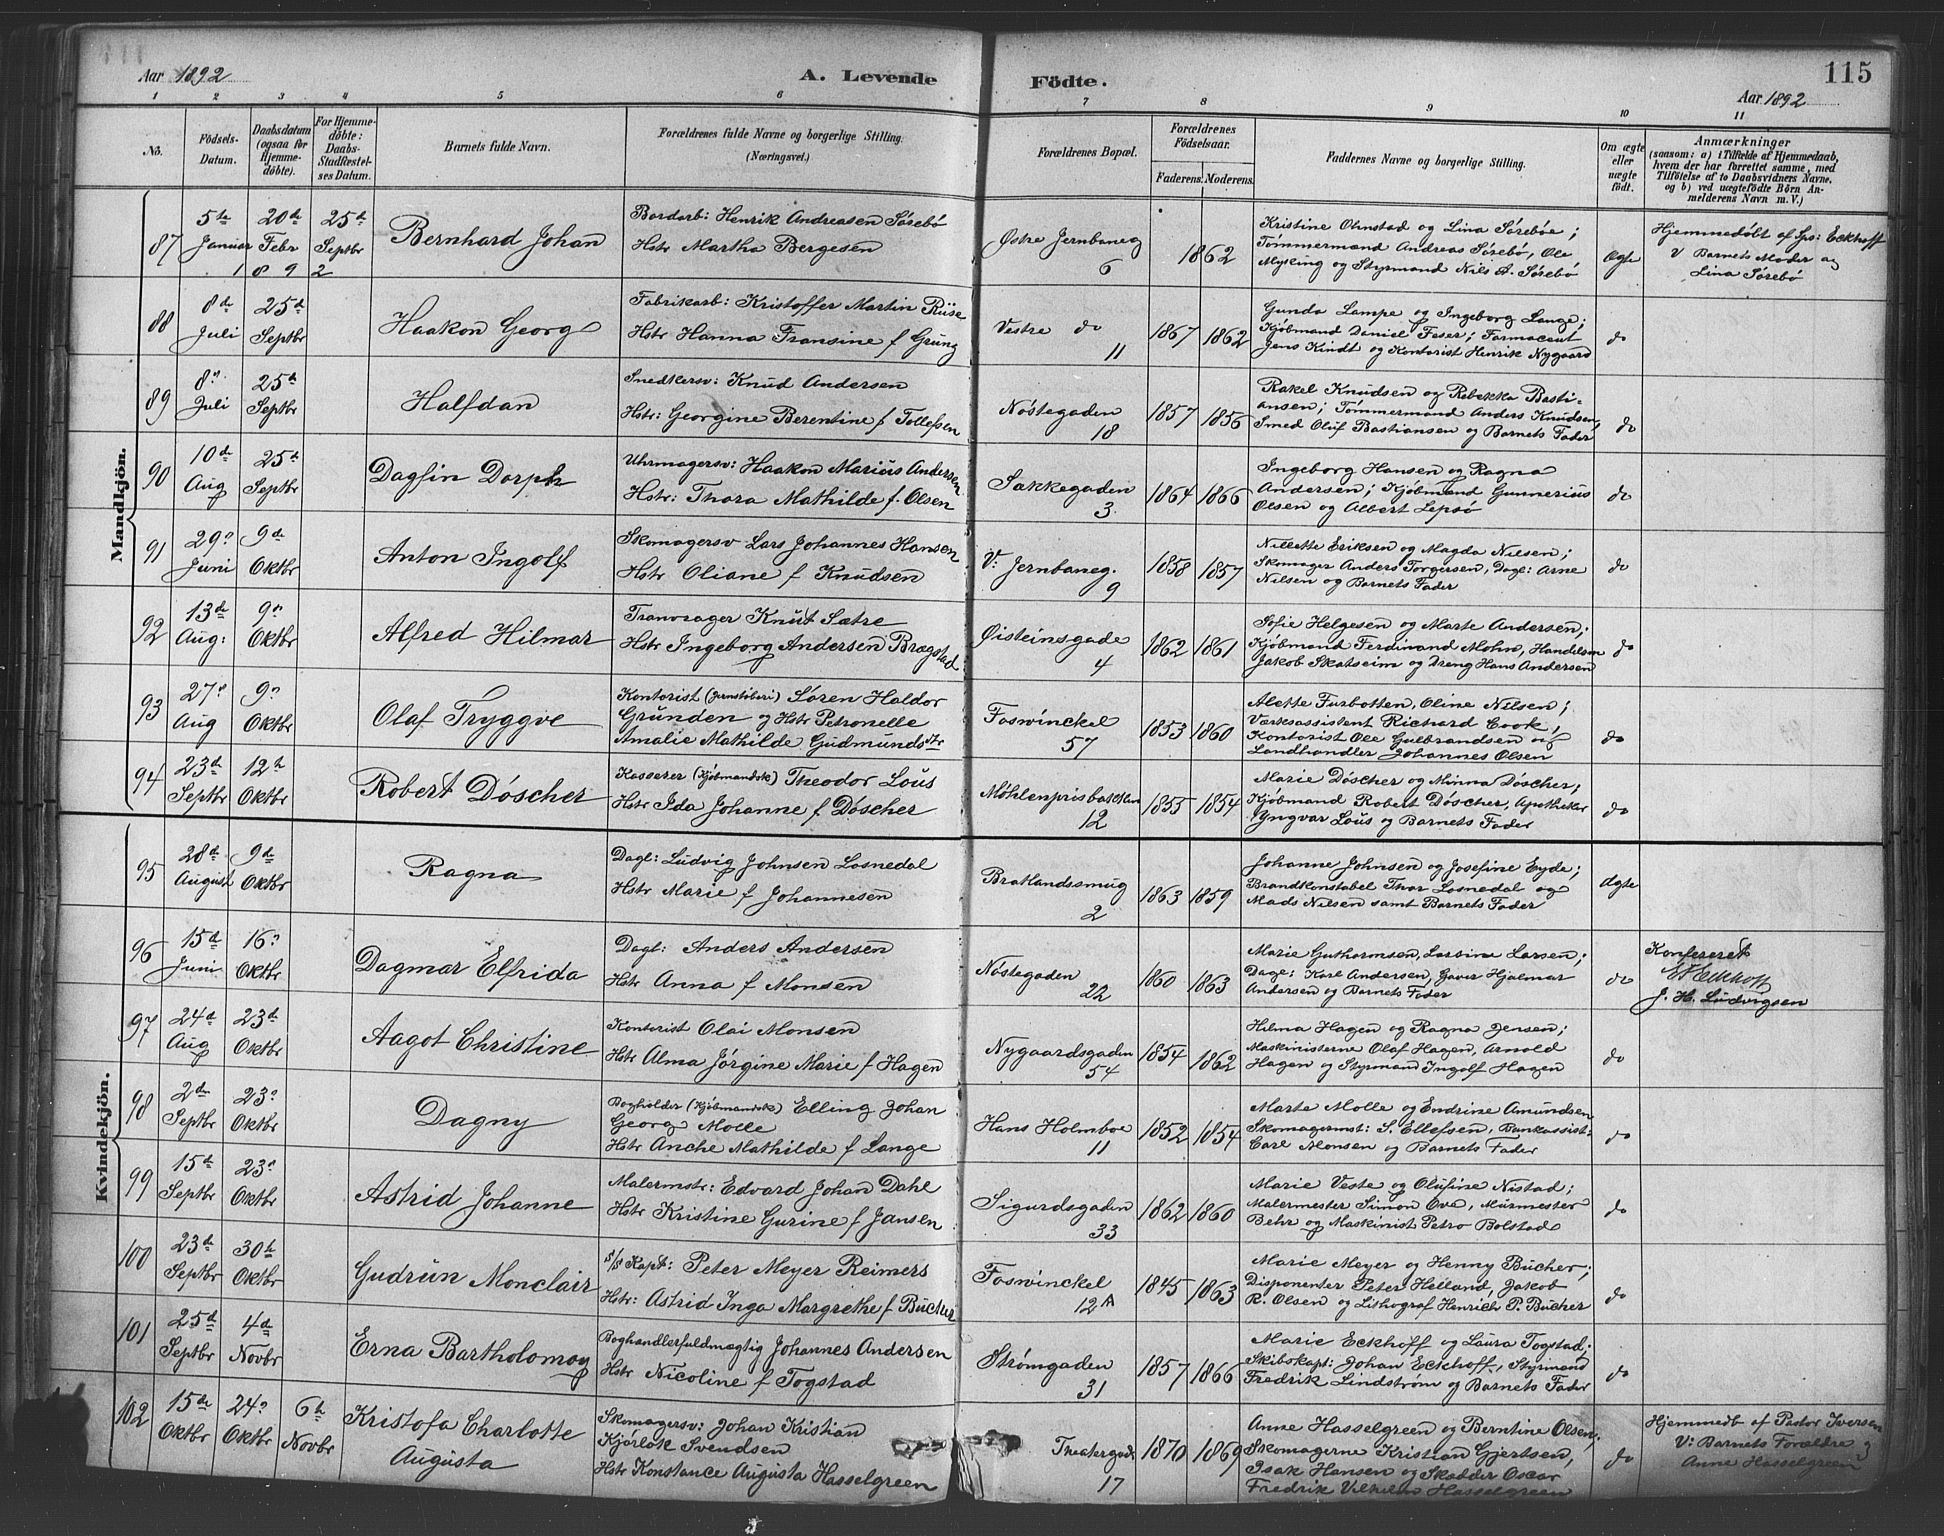 Aar 1892
A. Levende
Födte.
115
Aar 1892
1 2 3 4 5 6 7 8 9 10 11
No.
Födsels-
Datum.
Daabsdatum
(ogsaa for
Hjemme-
døbte).
For Hjemme-
døbte:
Daabs-
Stadfæstel-
ses Datum.
Barnets fulde Navn.
Forældrenes fulde Navne og borgerlige Stilling.
(Næringsvei.)
Forældrenes Bopæl.
Forældrenes
Födselsaar.
Faderens. Moderens.
Faddernes Navne og borgerlige Stilling.
Om ægte
eller
uægte
født.
Anmærkninger
(saasom: a) i Tilfælde af Hjemmedaab,
hvem der har forrettet samme, med
Tilföielse af to Daabsvidners Navne,
og b) ved uægtefödte Börn An-
melderens Navn m. V.)
Mandkjön.
87
5te Januar
20de Febr
1892
25de Septbr
Bernhard Johan
Bordarb: Henrik Andreasen Sørebö
Hstr Martha Bergesen
Østre Jernbaneg
6
1862
Kristine Ohnstad og Lina Sørebøe;
Tømmermand Andreas Sørebö, Ole
Mysking og Styrmand Nils A. Sørebö
Ægte
Hjemmedøbt af Sps: Eckhoff
V Barnets Moder og
Lina Sørebö
88
8de Juli
25de Septbr
Haakon Georg
Fabrikarb: Kristoffer Martin Rüse
Hstr Hanna Fransine f Grung
Vestre do
11
1867 1862
Gunda Lampe og Ingeborg Lange;
Kjøbmand Daniel Feser; Farmaceut
Jens Kindt og Kontorist Henrik Nygaard
do
89
8de Juli
25de Septbr
Halfdan
Snedkersv: Knud Andersen
Hstr: Georgine Berentine f Tollefsen
Nöstegaden
18
1857 1856
Rakel Knudsen og Rebekka Basti-
ansen; Tømmermand Anders Knudsen,
Smed Oluf Bastiansen og Barnets Fader
do
90
10de Aug
25de Septbr
Dagfin Dorph
Uhrmagersv: Haakon Marius Andersen
Hstr: Thora Mathilde f. Olsen
Sækkegaden
3
1864 1866
Ingeborg Hansen og Ragna
Andersen; Kjöbmand Gunnerius
Olsen og Albert Lepsö
do
91
29de Juni
9de Oktbr
Anton Ingolf
Skomagersv Lars Johannes Hansen
Hstr Oliane f Knudsen
V: Jernbaneg.
9
1858 1857
Nillette Eriksen og Magda Nilsen;
Skomager Anders Torgersen, Dagl: Arne
Nilsen og Barnets Fader
do
92
13de Aug:
9de Oktbr
Alfred Hilmar
Tranvrager Knut Sætre
Hstr Ingeborg Andersen Brægstad
Øisteinsgade
4
1862 1861
Sofie Helgesen og Marte Andersen;
Kjöbmand Ferdinand Mohn, Handelsm
Jakob Skatseim og Dreng Hans Andersen
do
93
27de Aug
9de Oktbr
Olaf Tryggve
Kontorist (Jernstöberi) Sören Haldor
Grunden og Hstr Petronelle
Amalie Mathilde Gudmundsdtr
Foswinckel
57
1853 1860
Alette Furbotten, Oline Nilsen;
Værksassistent Richard Cook,
Kontorist Ole Gulbrandsen og
Landhandler Johannes Olsen
do
94
23de Septbr
12te Oktbr
Robert Döscher
Kasserer (Kjöbmandsk) Theodor Lous
Hstr Ida Johanne f Döscher
Möhlenprisbakken
12
1855 1854
Marie Döscher og Minna Döscher;
Kjöbmand Robert Döscher, Apotheker
Yngvar Lous og Barnets Fader
do
Kvindekjön.
95
28de August
9de Oktbr
Ragna
Dagl: Ludvig Johnsen Losnedal
Hstr Marie f Johannesen
Bratlandssmug
2
1863 1859
Johanne Johnsen og Josefine Eyde;
Brandkonstabel Thor Losnedal og
Mads Nilsen samt Barnets Fader
Ægte
96
15de Juni
16de Oktbr
Dagmar Elfrida
Dagl: Anders Andersen
Hstr Anna f Monsen
Nöstegaden
22
1860 1863
Marie Guthormsen, Larsine Larsen;
Dagl: Karl Andersen, Gaver Hjalmar
Andersen og Barnets Fader
do
Konfereret
Eckhoff
J. H. Ludvigsen
97
24de Aug
23de Oktbr
Aagot Christine
Kontorist Olai Monsen
Hstr Alma Jörgine Marie f Hagen
Nygaardsgaden
54
1854 1862
Hilma Hagen og Ragna Jensen;
Maskinisterne Olaf Hagen, Arnold
Hagen og Styrmand Ingolf Hagen
do
98
2den Septbr
23de Oktbr
Dagny
Bogholder (Kjöbmandsk) Elling Johan
Georg Molle
Hstr Anche Mathilde f Lange
Hans Holmboe
11
1852 1854
Marte Molle og Endrine Amundsen
Skomagermst: S. Ellefsen, Bankassist:
Carl Monsen og Barnets Fader
do
99
15de Septbr
23de Oktbr
Astrid Johanne
Malermstr: Edvard Johan Dahl
Hstr Kristine Gurine f Jansen
Sigurdsgaden
33
1862 1860
Marie Veste og Olufine Nistad;
Malermester Simon Ove, Murmester
Behr og Maskinist Petro Bolstad
do
100
23de Septbr
30te Oktbr
Gudrun Monclair
S/S Kapt: Peter Meyer Reimers
Hstr: Astrid Inga Margrethe f Bücher
Foswinckel
12A
1845 1863
Marie Meyer og Henny Bücher;
Disponenter Peter Helland, Jakob
R. Olsen og Lithograf Henrich P. Bücher
do
101
25de Septbr
4de Novbr
Erna Bartholomay
Boghandlerfuldmægtig Johannes Andersen
Hstr Nicoline f Togstad
Strømgaden
31
1857 1866
Marie Eckhoff og Laura Togstad;
Skibskapt: Johan Eckhoff, Styrmand
Fredrik Lindstrøm og Barnets Fader
do
102
15de Oktbr
24de Oktbr
6te Novbr
Kristofa Charlotte
Augusta
Skomagersv: Johan Kristian
Kjörlok Svendsen
Hstr Konstance Augusta Hasselgreen
Theatergade
17
1870 1869
Anne Hasselgreen og Berntine Olsen;
Skomagerne Kristian Gjertsen,
Isak Hansen og Skødder Oscar
Fredrik Vilhelm Hasselgreen
do
Hjemmedb af Pastor Iversen
V: Barnets Forældre og
Anne Hasselgreen